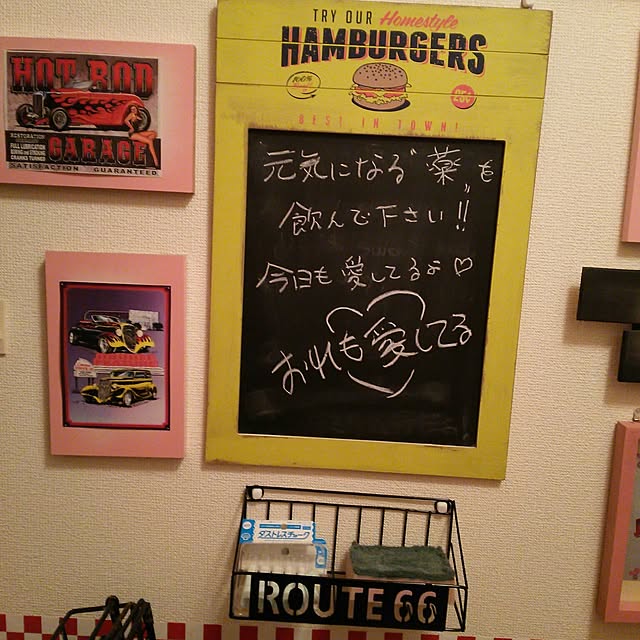 TRY OUR Homestyle
HAMBURGERS
100%
25¢
BEST IN TOWN!
HOT ROD
GARAGE
RESTORATION
FULL LUBRICATION
CRANKS TURNED
SATISFACTION GUARANTEED
元気になる〝薬〟も
飲んで下さい!!
今日も愛してるよ♡
おれも愛してる
ダストレスチョーク
ROUTE 66